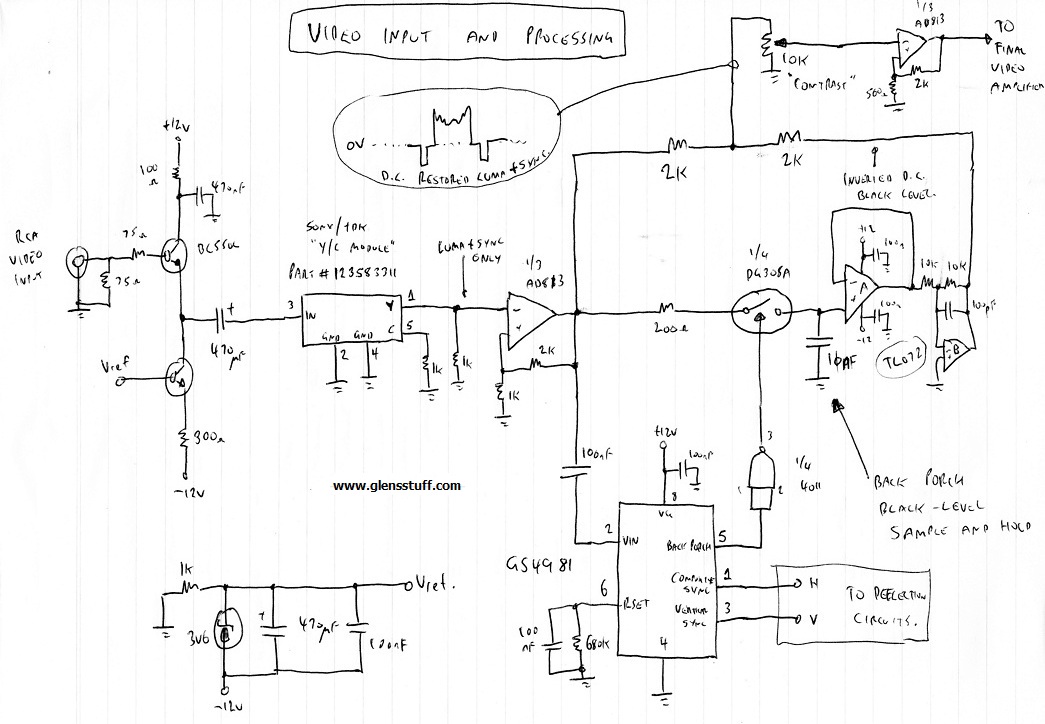 VIDEO INPUT AND PROCESSING
1/3
AD813
TO
FINAL
VIDEO
AMPLIFIER
10K
"CONTRAST"
500Ω
2K
0V
D.C. RESTORED LUMA + SYNC.
+12V
100
Ω
470nF
2K
2K
INVERTED D.C.
BLACK LEVEL.
RCA
VIDEO
INPUT
75Ω
75Ω
SONY/TDK
"Y/C MODULE"
PART # 123583311
LUMA + SYNC
ONLY
1/3
AD813
1/4
DG308A
+12
100n
10K
10K
3
IN
Y
1
C
5
GND
GND
2
4
A
100n
-12
100pF
B
TL072
470µF
1K
1K
2K
1K
200Ω
Vref
300Ω
-12V
100nF
+12V
100nF
3
1/4
4011
1
2
BACK PORCH
BLACK-LEVEL
SAMPLE AND HOLD
www.glensstuff.com
8
2
VIN
BACK PORCH
5
GS4981
COMPOSITE
SYNC
1
VERTICAL
SYNC
3
6
RSET
4
H
V
TO DEFLECTION
CIRCUITS.
100
nF
680K
1K
Vref.
3V6
470µF
100nF
-12V